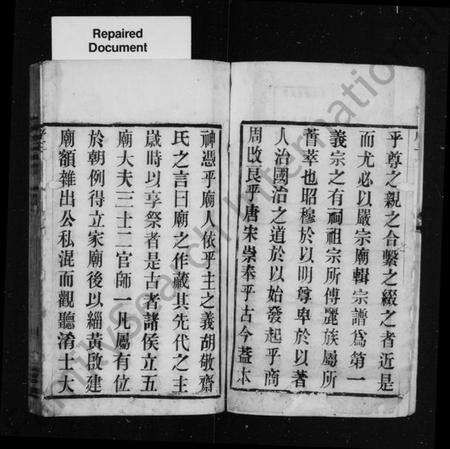 Repaired
Document
乎尊之親之合繫之綴之者近是
而尤必以嚴宗廟輯宗譜為第一
義宗之有祠祖宗所傅麗族屬所
薈萃也昭穆於以明尊卑於以著
人治國治之道於以始發起乎商
周改良乎唐宋崇奉乎古今蓋本
神憑乎廟人依乎主之義胡敬齋
氏之言曰廟之作藏其先代之主
歲時以享祭者是古者諸侯立五
廟大夫三士二官師一凡屬有位
於朝例得立家廟後以緇黃啟建
廟額雜出公私混而觀聽淆士大